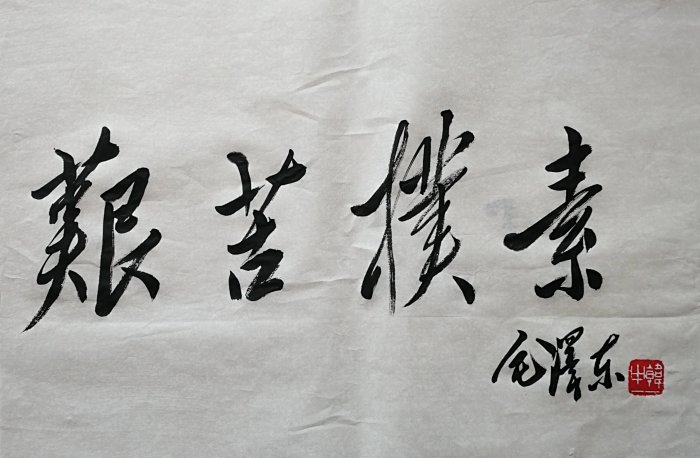 艱苦樸素
毛澤东